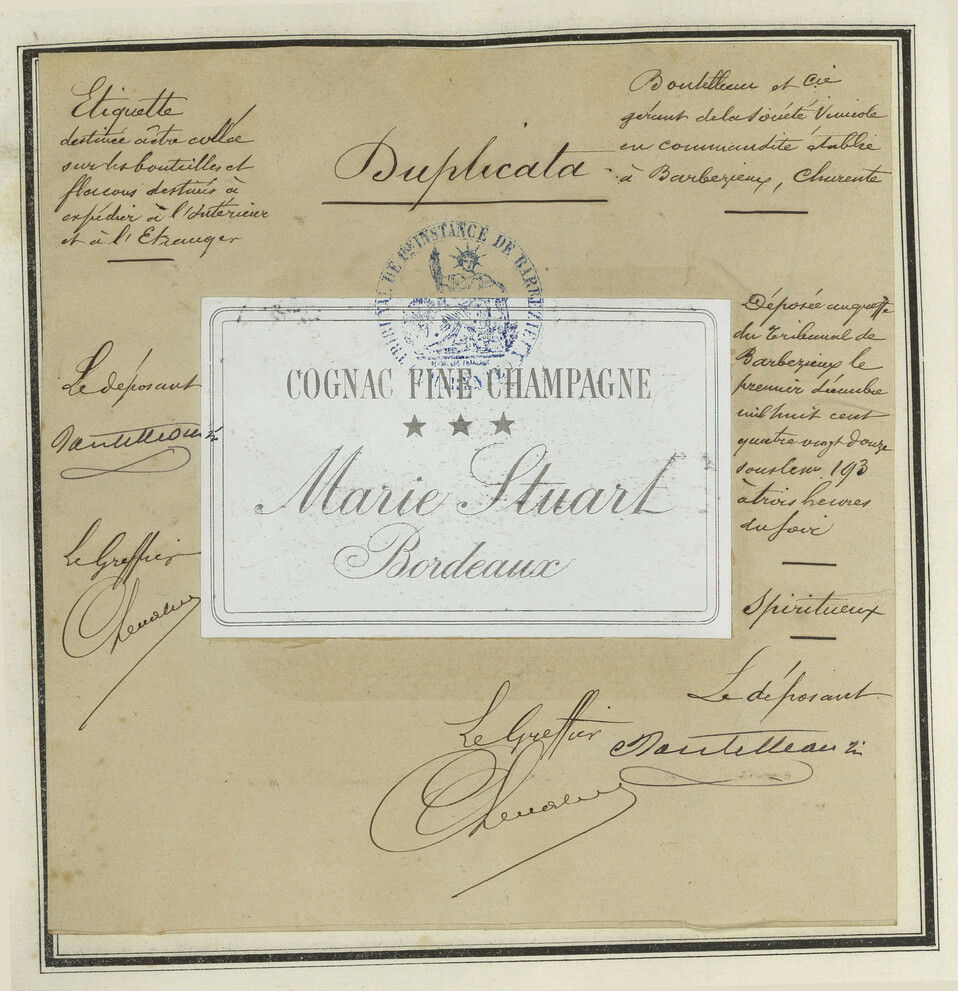 Etiquette
destinée à être collée
sur les bouteilles et
flacons destinés à
expédier à l'Intérieur
et à l'Etranger
Duplicata
Boutelleau et Cie
gérant de la Société Vinicole
en commandite établie
à Barbezieux, Charente
TRIBUNAL DE 1RE INSTANCE DE BARBEZIEUX
COGNAC FINE CHAMPAGNE
Marie Stuart
Bordeaux
Déposée au greffe
du Tribunal de
Barbezieux le
premier décembre
mil huit cent
quatre vingt douze
sous le no 193
à trois heures
du soir
Spiritueux
Le déposant
Boutelleau
Le Greffier
Le déposant
Le Greffier
Boutelleau